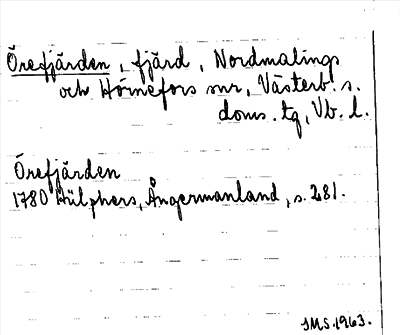 Örefjärden, fjärd, Nordmalings
och Hörnefors snr, Västerb. s.
doms. tg, Vb. l.
Örefjärden
1780 Hülphers, Ångermanland, s. 281.
IMS. 1963.